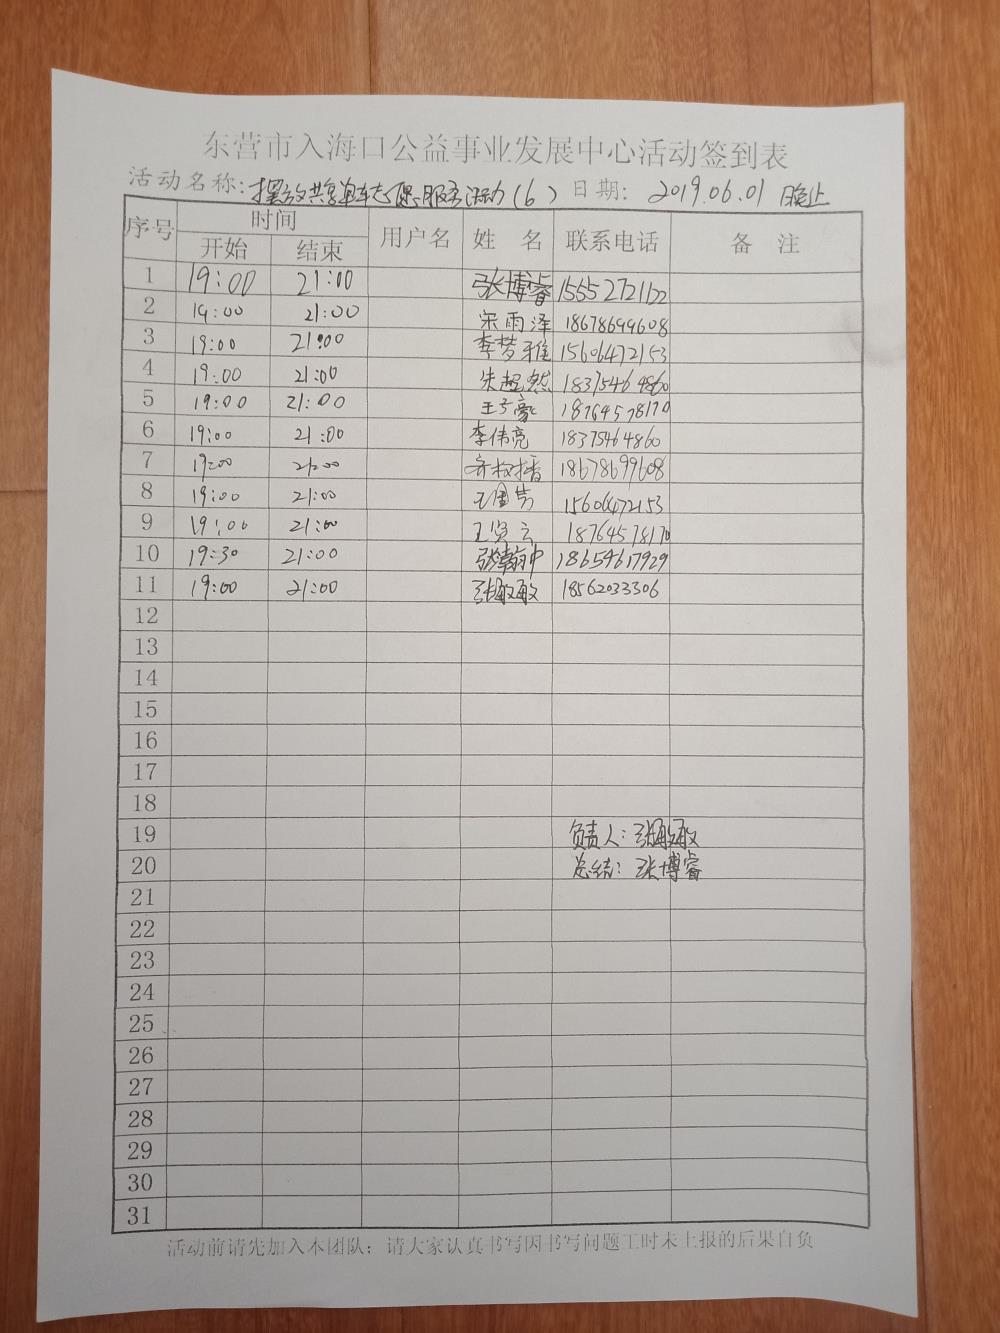 东营市入海口公益事业发展中心活动签到表
活动名称: 摆放共享单车志愿服务活动(6) 日期: 2019.06.01 晚上
序号 时间 用户名 姓 名 联系电话 备 注
开始 结束
1 19:00 21:00 张博睿 15552721122
2 19:00 21:00 宋雨泽 18678699608
3 19:00 21:00 李梦雅 15606472153
4 19:00 21:00 朱超然 18375464860
5 19:00 21:00 王子豪 18764578170
6 19:00 21:00 李伟亮 18375464860
7 19:00 21:00 18678699608
8 19:00 21:00 15606472153
9 19:00 21:00 王贤云 18764578170
10 19:30 21:00 18654617929
11 19:00 21:00 张敏敏 18562033306
12
13
14
15
16
17
18
19 负责人: 张敏敏
20 总结: 张博睿
21
22
23
24
25
26
27
28
29
30
31
活动前请先加入本团队; 请大家认真书写因书写问题工时未上报的后果自负